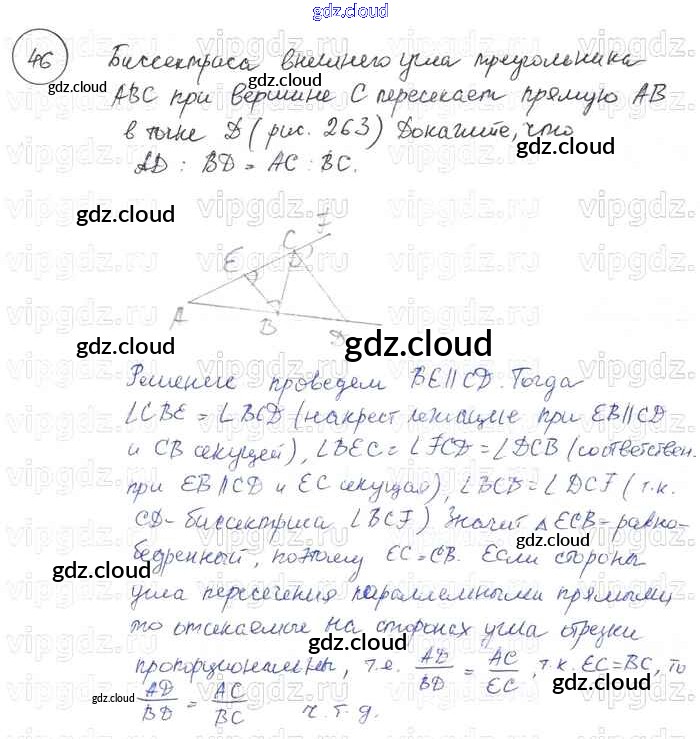 gdz.cloud
46 Биссектриса внешнего угла треугольника
ABC при вершине C пересекает прямую AB
в точке D (рис. 263) Докажите, что
AD : BD = AC : BC.
gdz.cloud
gdz.cloud
gdz.cloud
gdz.cloud
F
C
E
A
B
D
gdz.cloud
gdz.cloud
Решение проведем BE∥CD. Тогда
∠CBE = ∠BCD (накрест лежащие при EB∥CD
и CB секущей), ∠BEC = ∠FCD = ∠DCB (соответствен.
при EB∥CD и EC секущая), ∠BCD = ∠DCF (т.к.
CD - биссектриса ∠BCF) Значит △ECB - равно-
бедренный, поэтому EC = CB. Если стороны
угла пересечения параллельными прямыми
то отсекаемые на сторонах угла отрезки
пропорциональны, т.е. AD/BD = AC/EC, т.к. EC = BC, то
AD/BD = AC/BC ч.т.д.
gdz.cloud
gdz.cloud
gdz.cloud
gdz.cloud
gdz.cloud
gdz.cloud
gdz.cloud
vipgdz.ru